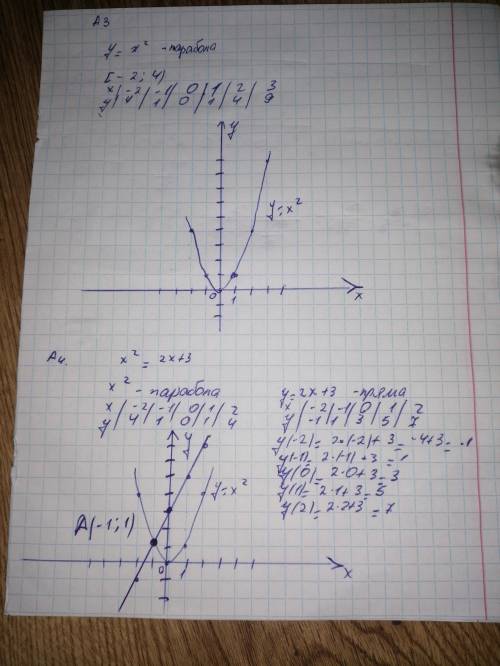 А3
y = x² - парабола
[-2; 4)
x | -2 | -1 | 0 | 1 | 2 | 3
y | 4 | 1 | 0 | 1 | 4 | 9
y
y = x²
0 1 x
А4. x² = 2x+3
x² - парабола
x | -2 | -1 | 0 | 1 | 2
y | 4 | 1 | 0 | 1 | 4
y = 2x+3 - пряма
x | -2 | -1 | 0 | 1 | 2
y | -1 | 1 | 3 | 5 | 7
y(-2) = 2·(-2)+3 = -4+3 = -1
y(-1) = 2·(-1)+3 = 1
y(0) = 2·0+3 = 3
y(1) = 2·1+3 = 5
y(2) = 2·2+3 = 7
y
y = x²
A(-1; 1)
0 1 x